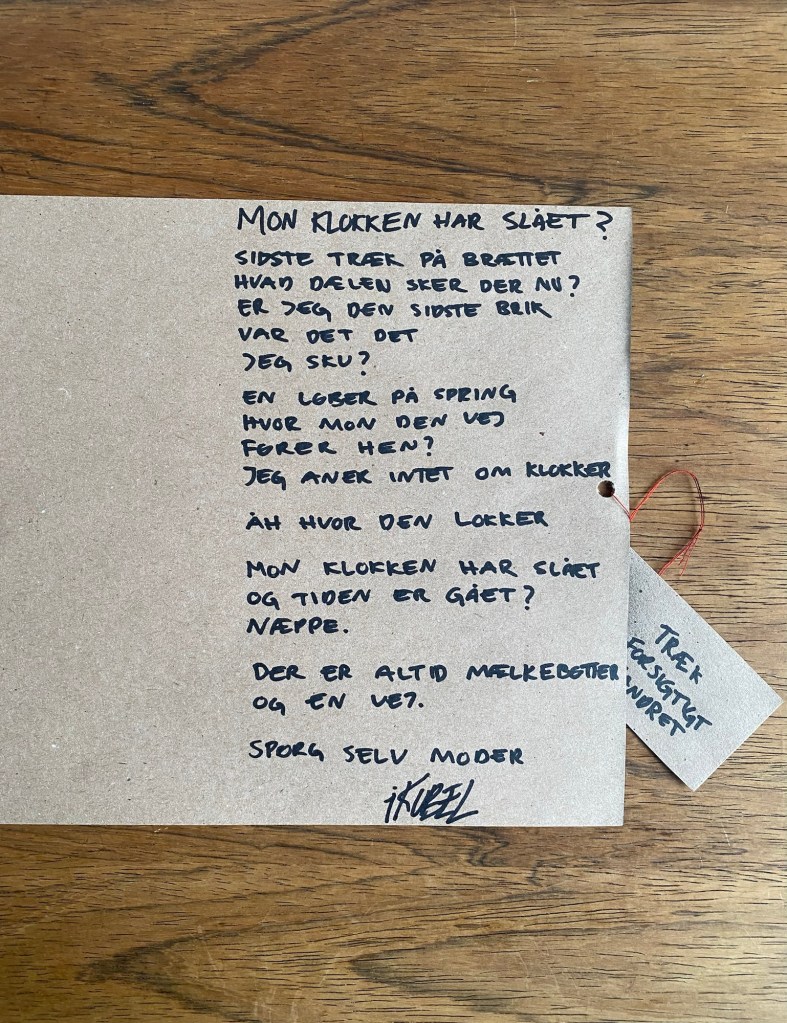 MON KLOKKEN HAR SLÅET?
SIDSTE TRÆK PÅ BRÆTTET
HVAD DÆLEN SKER DER NU?
ER JEG DEN SIDSTE BRIK
VAR DET DET
JEG SKU?
EN LØBER PÅ SPRING
HVOR MON DEN VEJ
FØRER HEN?
JEG ANER INTET OM KLOKKER
ÅH HVOR DEN LOKKER
MON KLOKKEN HAR SLÅET
OG TIDEN ER GÅET?
NÆPPE.
DER ER ALTID MÆLKEBØTTER
OG EN VEJ.
SPØRG SELV MODER
TRÆK
FORSIGTIGT